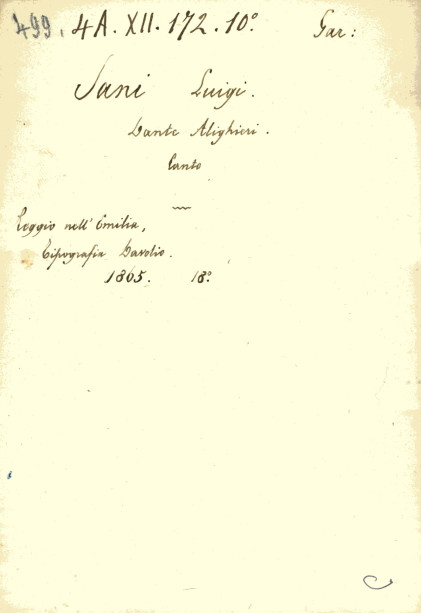 499. 4A. XII. 172. 10.° Gar:
Sani Luigi.
Dante Alighieri.
Canto
Reggio nell' Emilia,
Tipografia Davolio.
1865. 18.°